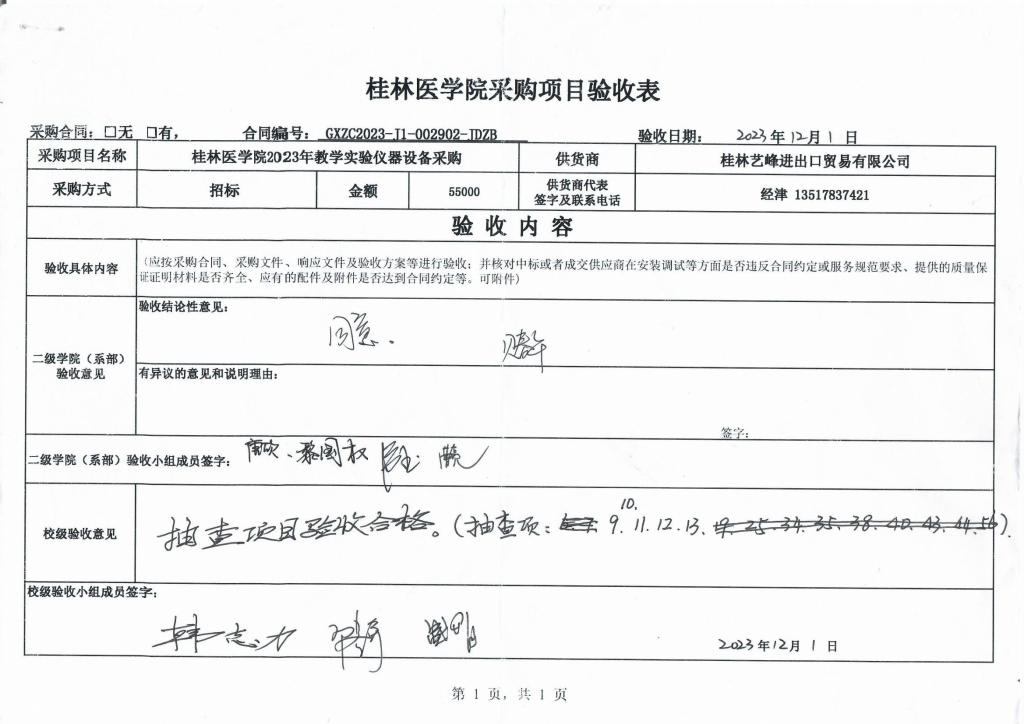 桂林医学院采购项目验收表
采购合同：□无 □有， 合同编号： GXZC2023-J1-002902-JDZB 验收日期： 2023年12月1日
采购项目名称 桂林医学院2023年教学实验仪器设备采购 供货商 桂林艺峰进出口贸易有限公司
采购方式 招标 金额 55000 供货商代表签字及联系电话 经津 13517837421
验收内容
验收具体内容 （应按采购合同、采购文件、响应文件及验收方案等进行验收；并核对中标或者成交供应商在安装调试等方面是否违反合同约定或服务规范要求、提供的质量保
证证明材料是否齐全、应有的配件及附件是否达到合同约定等。可附件）
二级学院（系部）
验收意见
验收结论性意见：
同意.
有异议的意见和说明理由：
签字：
二级学院（系部）验收小组成员签字：
校级验收意见
抽查项目验收合格。（抽查项： 9. 10. 11. 12. 13. 19. 25. 34. 35. 38. 40. 43. 44. 56）.
校级验收小组成员签字：
韩志力
2023年12月1日
第 1 页，共 1 页